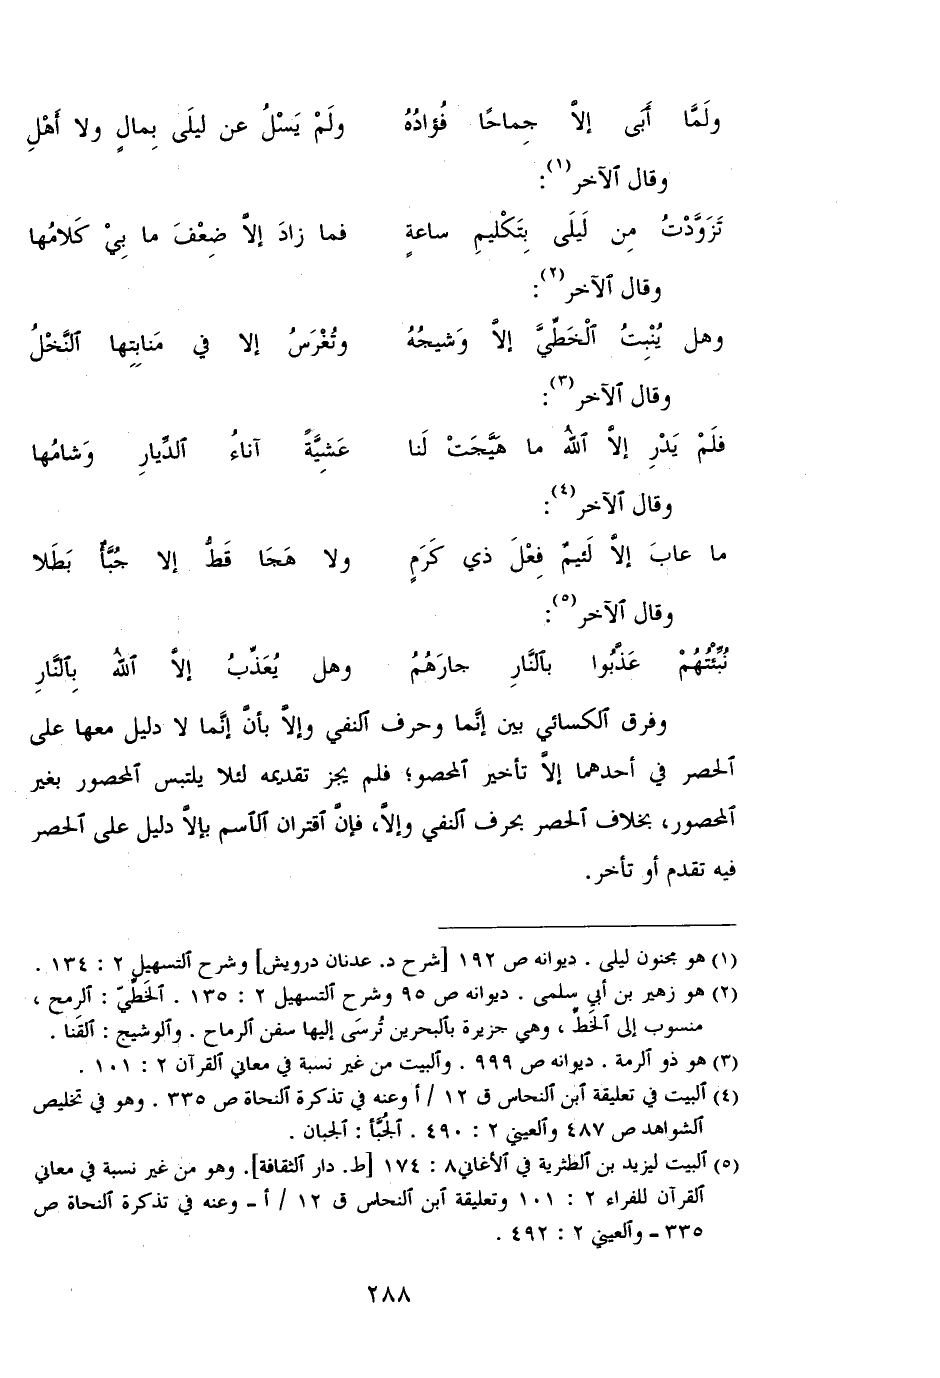 ولَمَّا أَبَى إلاَّ جِماحًا فُؤادُهُ ولَمْ يَسْلُ عن ليلَى بِمالٍ ولا أَهْلِ
وقال ٱلآخر(١):
تَزَوَّدْتُ مِن لَيلَى بِتَكْليمِ ساعةٍ فما زادَ إلاَّ ضِعْفَ ما بِيْ كَلامُها
وقال ٱلآخر(٢):
وهل يُنْبِتُ ٱلْخَطِّيَّ إلاَّ وَشيجُهُ وتُغْرَسُ إلا في مَنابِتِها ٱلنَّخْلُ
وقال ٱلآخر(٣):
فلَمْ يَدْرِ إلاَّ ٱللهُ ما هَيَّجَتْ لَنا عَشِيَّةً آناءُ ٱلدِّيارِ وَشامُها
وقال ٱلآخر(٤):
ما عابَ إلاَّ لَئيمٌ فِعْلَ ذي كَرَمٍ ولا هَجَا قَطُّ إلا جُبَّأٌ بَطَلا
وقال ٱلآخر(٥):
نُبِّئْتُهُمْ عَذَّبُوا بٱلنَّارِ جارَهُمُ وهل يُعَذِّبُ إلاَّ ٱللهُ بِٱلنَّارِ
وفرق ٱلكسائي بين إنَّما وحرف ٱلنفي وإلاَّ بأنَّ إنَّما لا دليل معها على
ٱلحصر في أحدهما إلاَّ تأخير ٱلمحصو؛ فلم يجز تقديمه لئلا يلتبس ٱلمحصور بغير
ٱلمحصور، بخلاف ٱلحصر بحرف ٱلنفي وإلاَّ، فإنَّ ٱقتران ٱلٱسم بإلاَّ دليل على ٱلحصر
فيه تقدم أو تأخر.
(١) هو مجنون ليلى . ديوانه ص ١٩٢ [شرح د. عدنان درويش] وشرح ٱلتسهيل ٢ : ١٣٤ .
(٢) هو زهير بن أبي سلمى . ديوانه ص ٩٥ وشرح ٱلتسهيل ٢ : ١٣٥ . ٱلخَطِّيّ : ٱلرمح ،
منسوب إلى ٱلخَطِّ ، وهي جزيرة بٱلبحرين تُرسَى إليها سفن ٱلرماح . وٱلوشيج : ٱلقَنا .
(٣) هو ذو ٱلرمة . ديوانه ص ٩٩٩ . وٱلبيت من غير نسبة في معاني ٱلقرآن ٢ : ١٠١ .
(٤) ٱلبيت في تعليقة ٱبن ٱلنحاس ق ١٢ / أ وعنه في تذكرة ٱلنحاة ص ٣٣٥ . وهو في تخليص
ٱلشواهد ص ٤٨٧ وٱلعيني ٢ : ٤٩٠ . ٱلجُبَّأ : ٱلجبان .
(٥) ٱلبيت ليزيد بن ٱلطثرية في ٱلأغاني٨ : ١٧٤ [ط. دار ٱلثقافة]. وهو من غير نسبة في معاني
ٱلقرآن للفراء ٢ : ١٠١ وتعليقة ٱبن ٱلنحاس ق ١٢ / أ ـ وعنه في تذكرة ٱلنحاة ص
٣٣٥ ـ وٱلعيني ٢ : ٤٩٢ .
٢٨٨